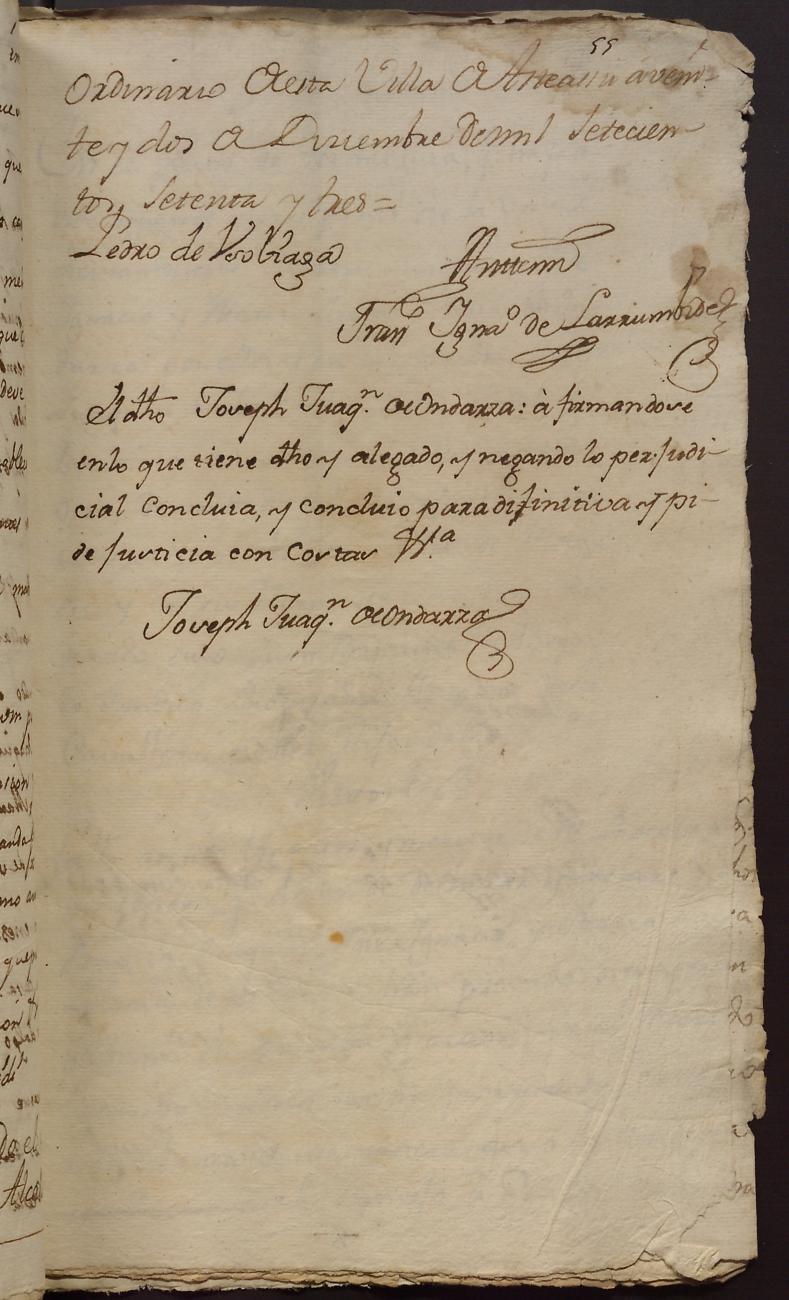 55
Ordinario de esta Villa de Arreassu a vein-
te y dos de Diciembre de mil setecien-
tos, setenta y tres=
Pedro de
Antemi
Fran.co Igna.o de Larrumbide
El dho Joseph Juaq.n de Ondarza: à firmandose
en lo que tiene dho y alegado, y negando lo perjudi-
cial Concluia, y concluio para difinitiva y pi-
de Justicia con Costas
Joseph Juaq.n de Ondarza